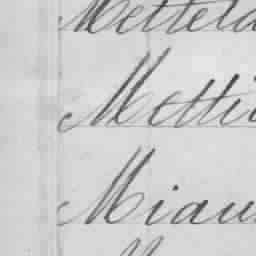 Mettela
Metti
Miau